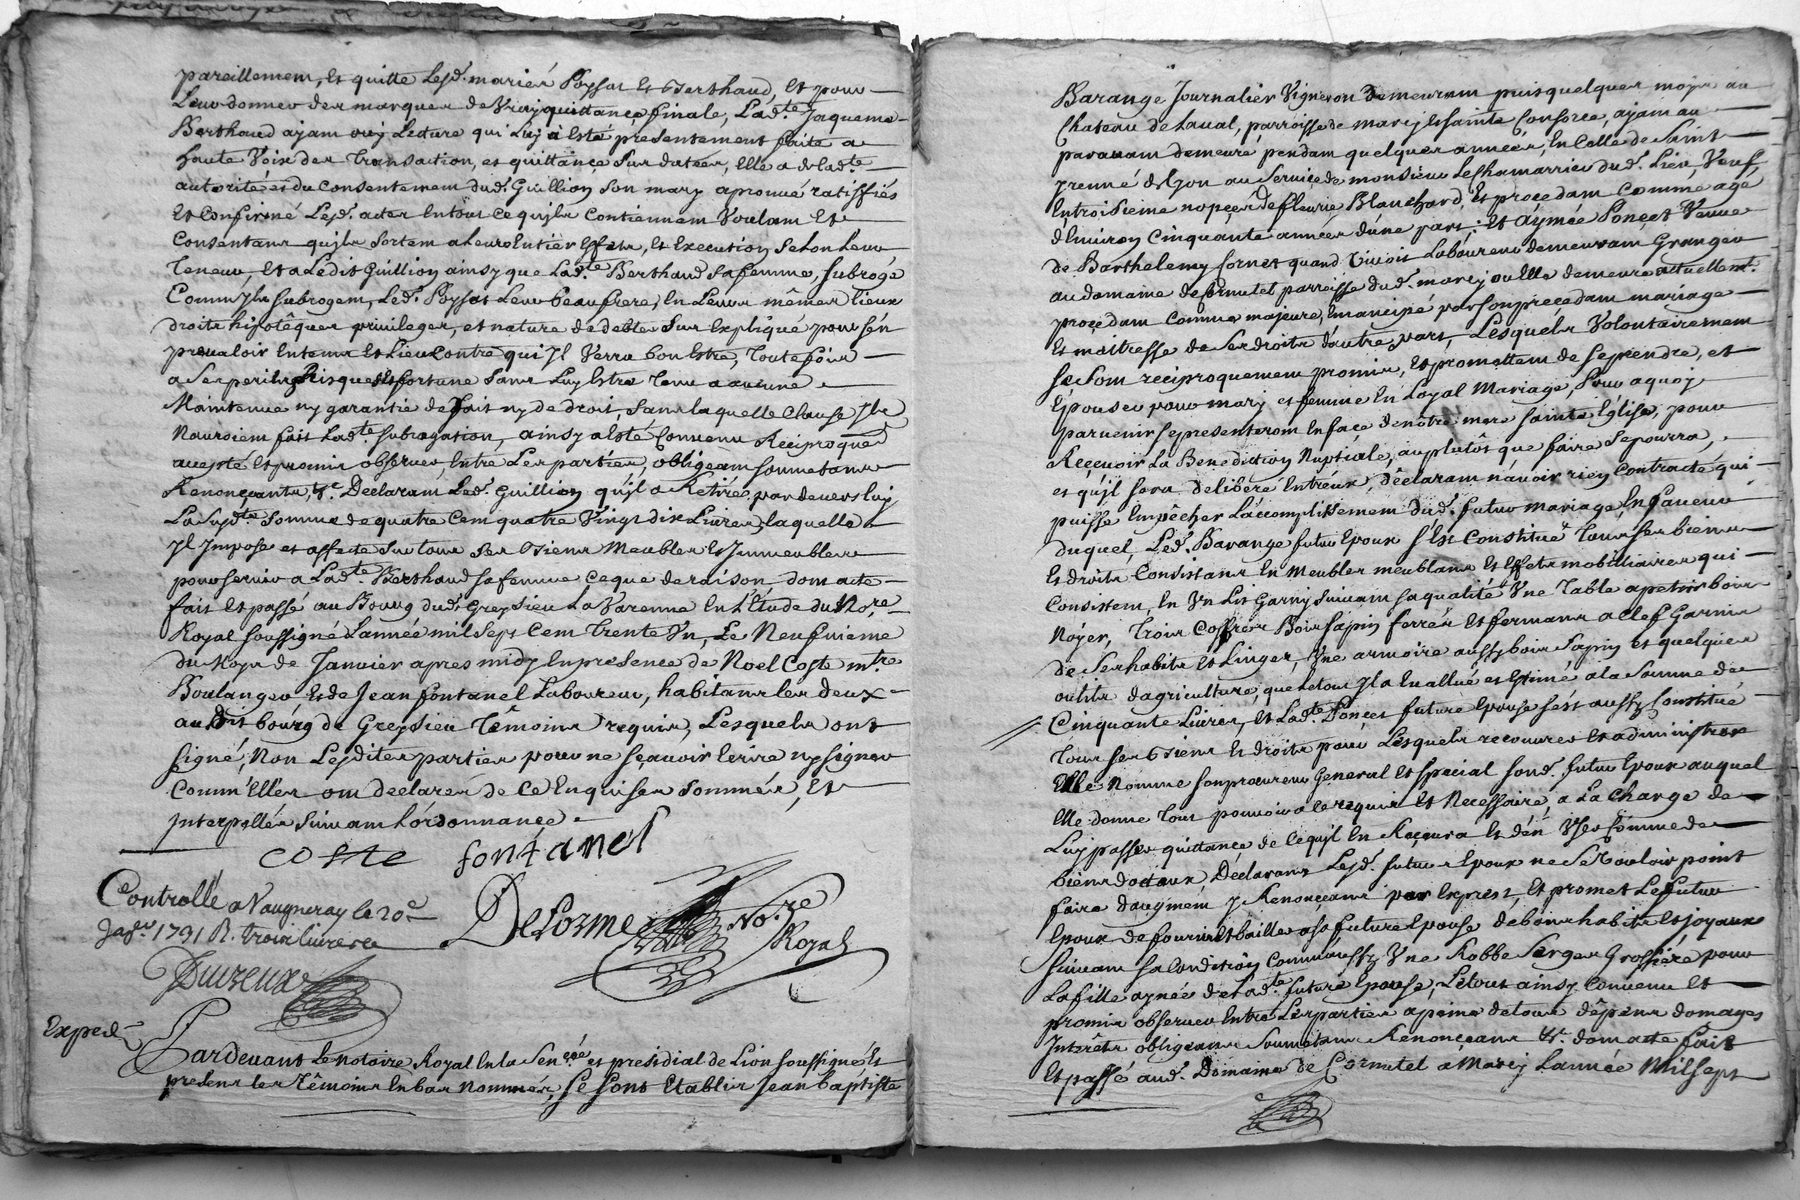 pareillement, et quitte lesd. mariés Poyfat et Berthaud, et pour
leur donner des marques de vray quittance finale, lad.te Jaqueme
Berthaud ayant ouy lecture qui luy a esté presentement faite a
haute voix des transaction, et quittance sur dattées, elle a de lad.te
autorité et du consentement dud. Guillion son mary aprouvé ratiffiés
et confirmé lesd. actes en tout ce qu'ils contiennent voulant et
consentant qu'ils sortent a leurs entier effets, et execution selon leur
teneur, et a ledit Guillion ainsy que lad.te Berthaud sa femme, subrogé
comm'ils subrogent, led. Poyfat leur beaufrere, en leurs mêmes lieux
droits hipotêques privileges, et nature de debtes sur expliqué pour s'en
prevaloir en tems et lieu contre qui Jl verra bon estre, toute fois
a ses perils risques et fortune sans luy estre tenu a aucune
maintenue ny garantie de fait ny de droit, sans laquelle clause Jls
n'auroient fait lad.te subrogation, ainsy a esté convenu reciproqued
accepté et promis observer, entre les parties, obligeant soumetant
renonçants, &c. Declarant led. Guillion qu'Jl a retirés par devers luy
la susd.te somme de quatre cent quatre vingt dix livres, laquelle
Jl impose et affecte sur tous ses biens meubles et Jmmeubles
pour servir a lad.te Berthaud sa femme ce que de raison, dont acte
fait et passé au bourg dud. Greysieu la Varenne en l'étude du No.re
Royal soussigné l'année mil sept cent trente un, le neufvieme
du mois de Janvier apres midy en presence de Noel Coste m.tre
Boulanger et de Jean fontanel laboureur, habitans les deux
au dit bourg de Greysieu têmoins requis, lesquels ont
signé, non lesdites parties pour ne sçavoir écrire ny signer
comm'elles ont declarés de ce enquises sommés, et
interpellés suivant l'ordonnance.
coste fontanel
Controllé a Vaugneray le 20e
Janer 1731 R. trois livres
Delorme No.re Royal
Duvreux
Exped.
Pardevant le notaire Royal en la Sen.ée et presidial de Lion soussigné, et
presens les têmoins en bas nommés, se sont etablis Jean baptiste
Barange Journalier Vigneron demeurant puis quelques mois au
Chateau de Laval, parroisse de marcy et sainte Consorce, ayant au
paravant demeuré pendant quelques années, en celle de saint
prenné de lyon au service de monsieur Leschamarrier dud. lieu, veuf
en troisieme nopces de fleurie Blanchard, et procedant comme agé
d'environ cinquante années d'une part; et aymée Ponçet veuve
de Barthelemy fornet quand vivoit laboureur demeurant granger
au domaine de Cornutel parroisse dud. marcy ou elle demeure actuellemt.
procedant comme majeure, Emancipé par son precedant mariage
et maitresse de ses droits d'autre part, lesquels volontairement
se sont reciproquement promis, et promettent de se prendre, et
épouser pour mary et femme en loyal mariage, pour a quoy
parvenir se presenteront en face de nôtre mere sainte Eglise, pour
recevoir la Benediction Nuptiale, au plutôt que faire se pourra,
et qu'il sera deliberé entr'eux, dêclarant n'avoir rien contracté qui
puisse empêcher l'accomplissement dud. futur mariage, en faveur
duquel, led. Barange futur epoux s'est constitué tous ses biens
et droits consistans en meubles meublans et effets mobiliaires qui
consistent, en un lit garny suivant sa qualité une table a petit bois
noyer, trois coffres bois sapin ferrés et fermant a clef garnis
de ses habits et linges, une armoire aussy bois sapin et quelques
outils d'agriculture, que le tout Jl a evallué et estimé a la somme de
cinquante livres, et lad.te Ponçet future epouse s'est aussy constitué
tous ses biens et droits pour lesquels recouvrer et administrer
elle nomme son procureur general et special sond. futur epoux auquel
elle donne tout pouvoir a ce requis et necessaire, a la charge de
luy passer quittance de ce qu'Jl en recevra et d'en user comme de
biens dotaux, Declarans lesd. futurs epoux ne se vouloir point
faire d'augment y renonçans par exprest, et promet le futur
epoux de fournir et bailler a sa future epouse de bons habits et joyaux
suivant sa condition comm'aussy une Robbe serge grossiere pour
la fille aynée de lad.te future epouse, le tout ainsy convenu et
promis observer entre les parties a peine de tous dêpens domages
interêts obligeans soumetans renonçans &c. dont acte fait
et passé aud. Domaine de Cornutel a Marcy l'année mil sept